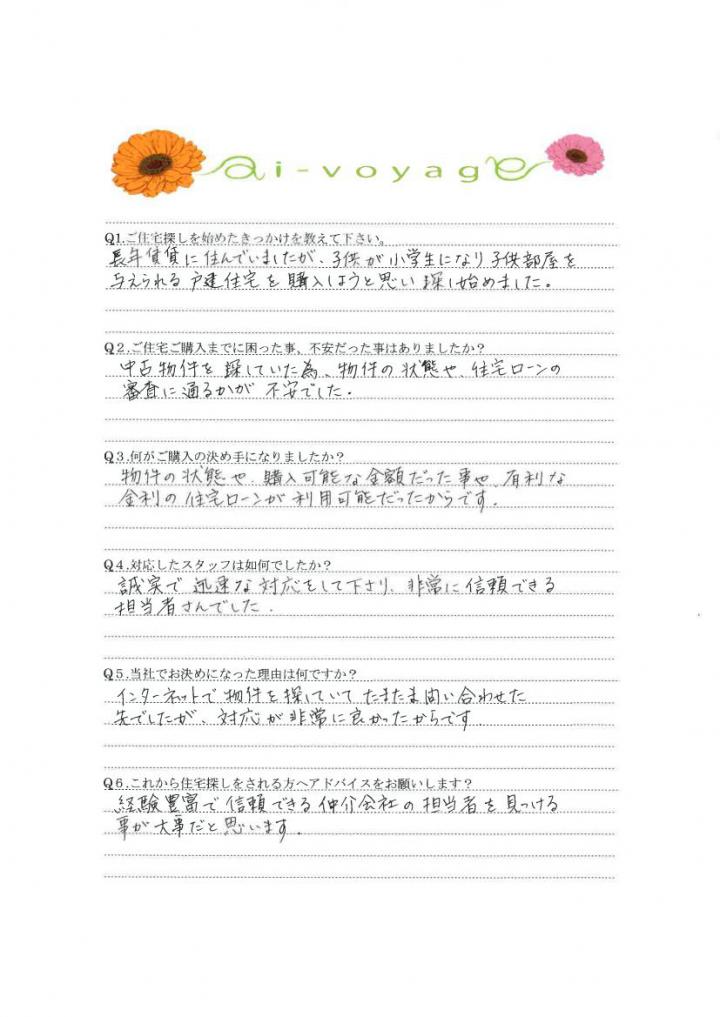 ai-voyage
Q1.ご住宅探しを始めたきっかけを教えて下さい。
長年賃貸に住んでいましたが、子供が小学生になり子供部屋を
与えられる戸建住宅を購入しようと思い探し始めました。
Q2.ご住宅ご購入までに困った事、不安だった事はありましたか?
中古物件を探していた為、物件の状態や、住宅ローンの
審査に通るかが不安でした。
Q3.何がご購入の決め手になりましたか?
物件の状態や、購入可能な金額だった事や、有利な
金利の住宅ローンが利用可能だったからです。
Q4.対応したスタッフは如何でしたか?
誠実で迅速な対応をして下さり、非常に信頼できる
担当者さんでした。
Q5.当社でお決めになった理由は何ですか?
インターネットで物件を探していてたまたま問い合わせた
先でしたが、対応が非常に良かったからです。
Q6.これから住宅探しをされる方へアドバイスをお願いします?
経験豊富で信頼できる仲介会社の担当者を見つける
事が大事だと思います。